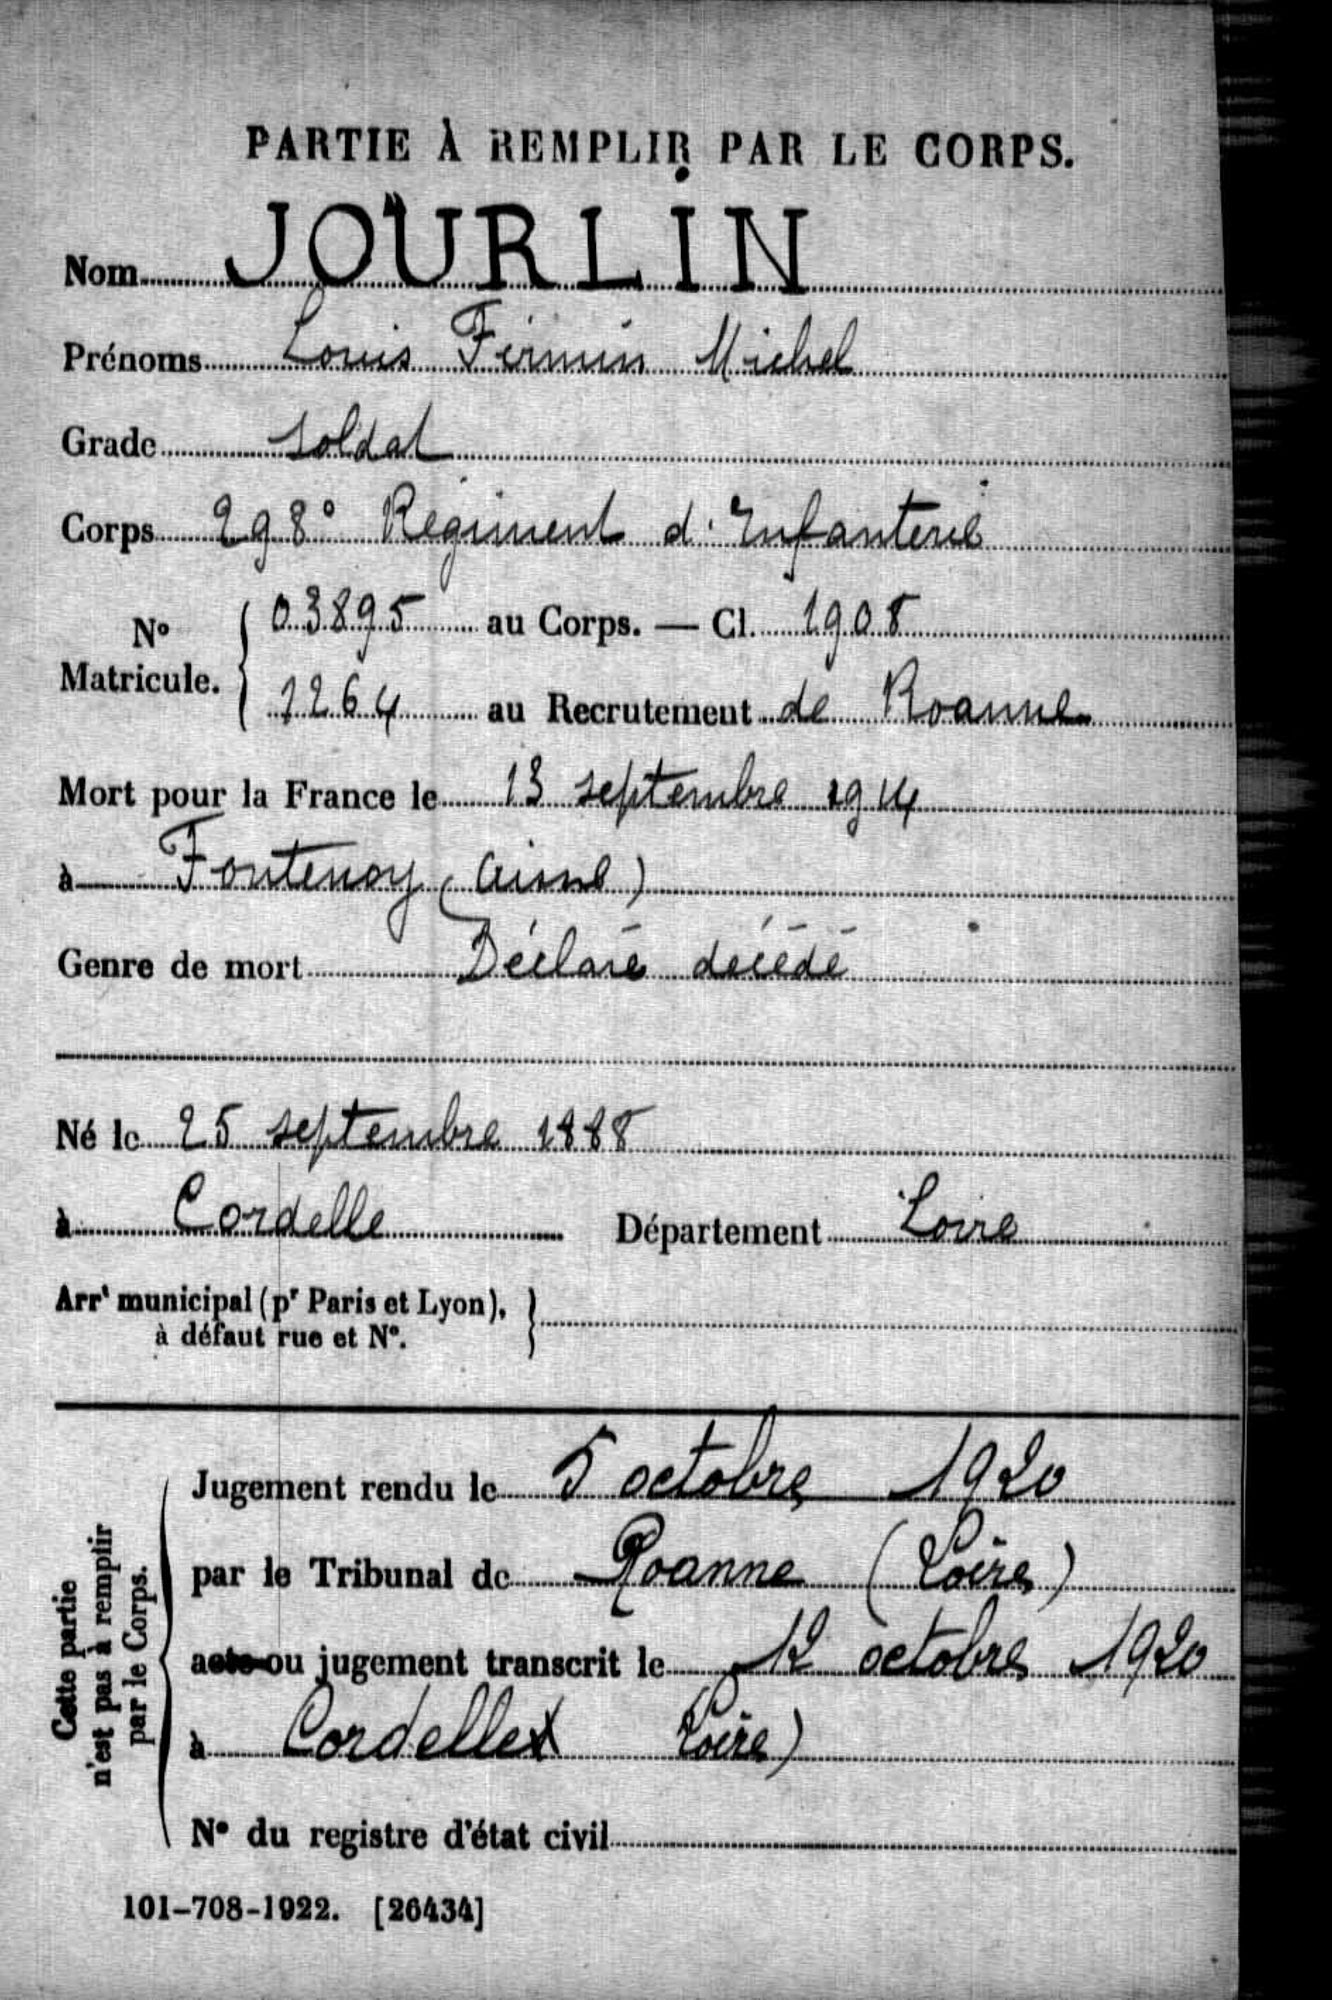 PARTIE À REMPLIR PAR LE CORPS.
Nom JOURLIN
Prénoms Louis Firmin Michel
Grade soldat
Corps 298° Régiment d'Infanterie
N° Matricule. { 03895 au Corps. — Cl. 1908
1264 au Recrutement de Roanne
Mort pour la France le 13 septembre 1914
à Fontenoy (Aisne)
Genre de mort Déclaré décédé
Né le 25 septembre 1888
à Cordelle Département Loire
Arrt municipal (pr Paris et Lyon),
à défaut rue et N°. }
Cette partie
n'est pas à remplir
par le Corps.
Jugement rendu le 5 octobre 1920
par le Tribunal de Roanne (Loire)
acte ou jugement transcrit le 12 octobre 1920
à Cordelle (Loire)
N° du registre d'état civil
101-708-1922. [26434]